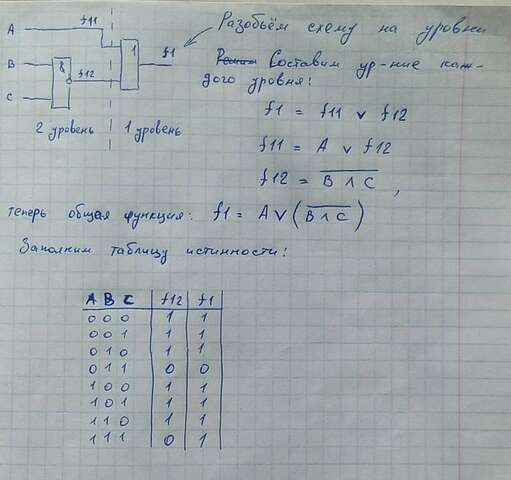 A f11
1 f1
B & f12
C
2 уровень 1 уровень
Разобьём схему на уровни
Составим ур-ние каж-
дого уровня:
f1 = f11 ∨ f12
f11 = A ∨ f12
f12 = \overline{B ∧ C} ,
теперь общая функция: f1 = A ∨ (\overline{B ∧ C})
Заполним таблицу истинности:
A B C f12 f1
0 0 0 1 1
0 0 1 1 1
0 1 0 1 1
0 1 1 0 0
1 0 0 1 1
1 0 1 1 1
1 1 0 1 1
1 1 1 0 1